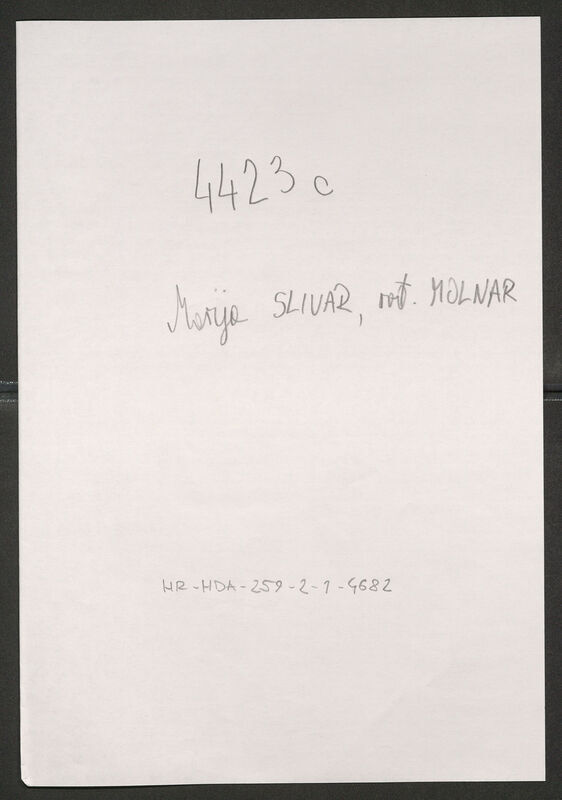 4423 c
Marija SLIVAR, rođ. MOLNAR
HR-HDA-259-2-1-4682